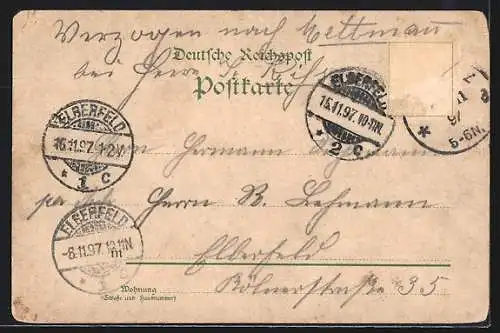 Verzogen nach Mettmann
Deutsche Reichspost
bei Herrn
Postkarte
ELBERFELD
15.11.97. 10-11N.
* 2 c
97
5-6N.
ELBERFELD
16.11.97. 1-2N.
* 1 c
Herrn Hermann
Herrn R. Lehmann
ELBERFELD
-6.11.97. 10-11N.
in
Elberfeld
Kölnerstraße 35
Wohnung
(Straße und Hausnummer)